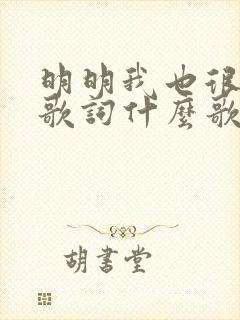 明明我也很
歌詞什麼歌
胡書堂